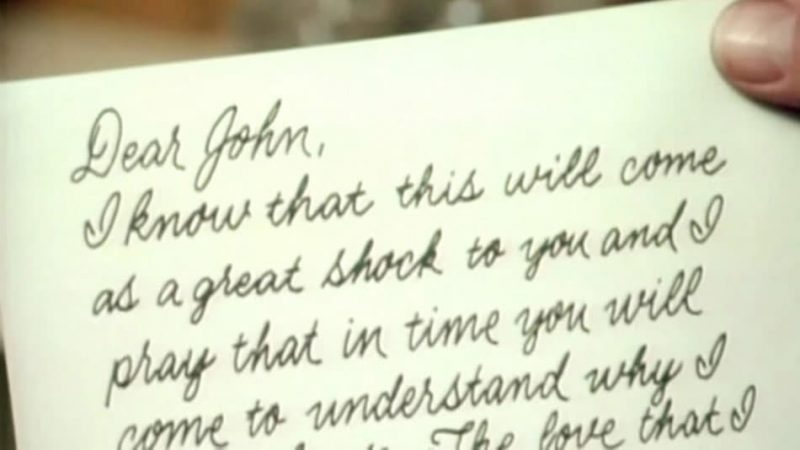 Dear John,
I know that this will come
as a great shock to you and I
pray that in time you will
come to understand why I
The love that I